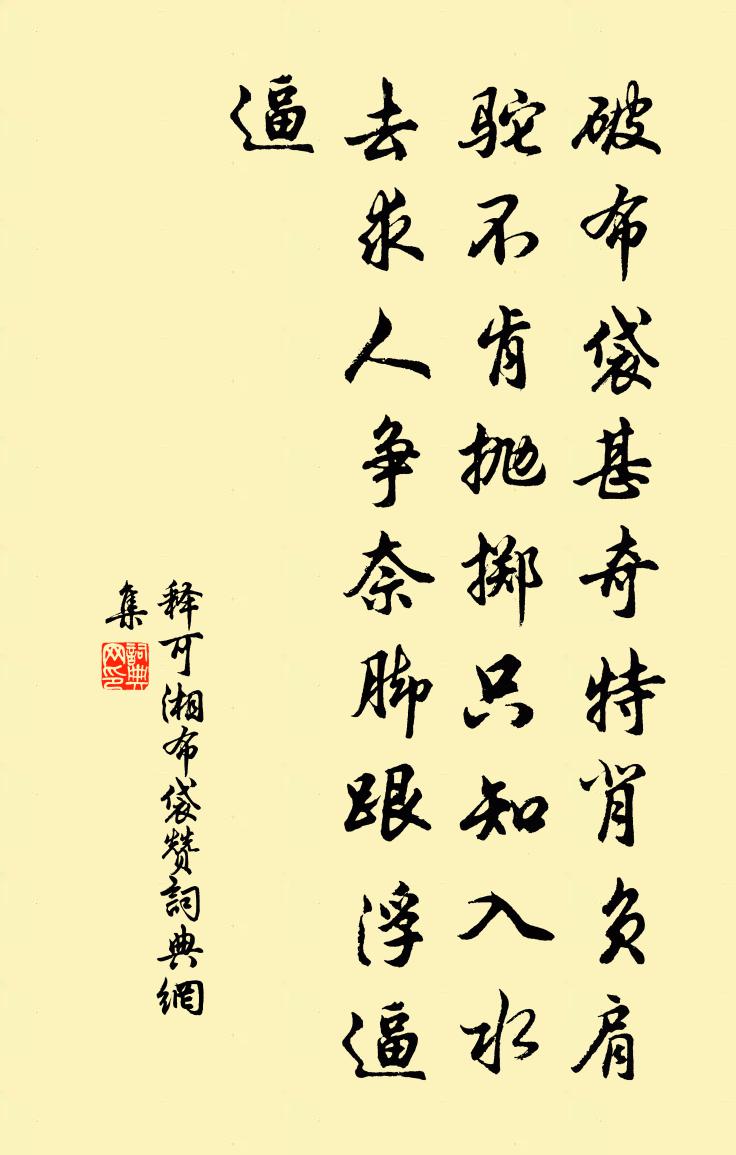 破布袋甚奇特背负肩
驼不肯抛掷只知入水
去求人争奈脚跟浮逼
逼
释可湘布袋赞詞典網
集
詞典网印